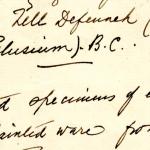 Tell Defenneh (
Pelusium). B.C.
specimens of
painted ware from